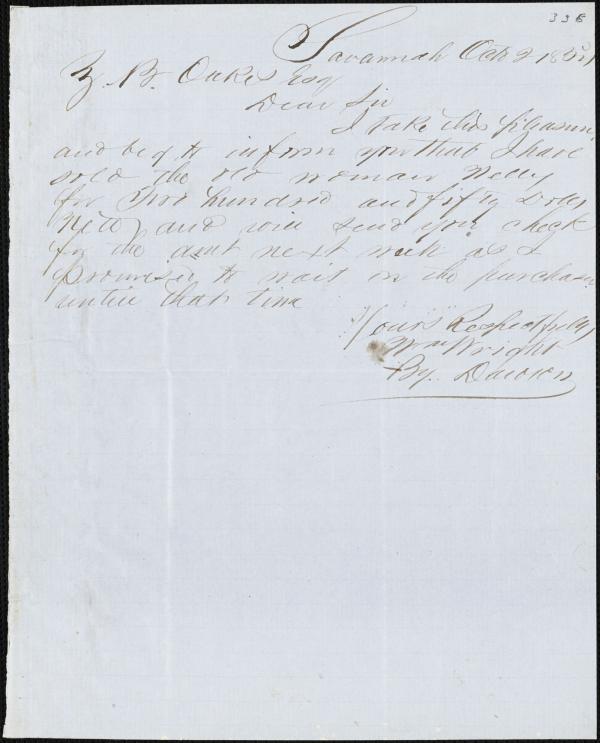 336
Savannah Oct 2 185
Z. B. Oakes Esq
Dear Sir
I take this pleasure
and beg to inform you that I have
sold the old woman Nelly
for Two hundred and fifty Dolls
Nett, and will send you check
for the amt next week as I
promised to wait on the purchaser
untill that time
Yours Respectfully
Wm Wright
By. Dawson